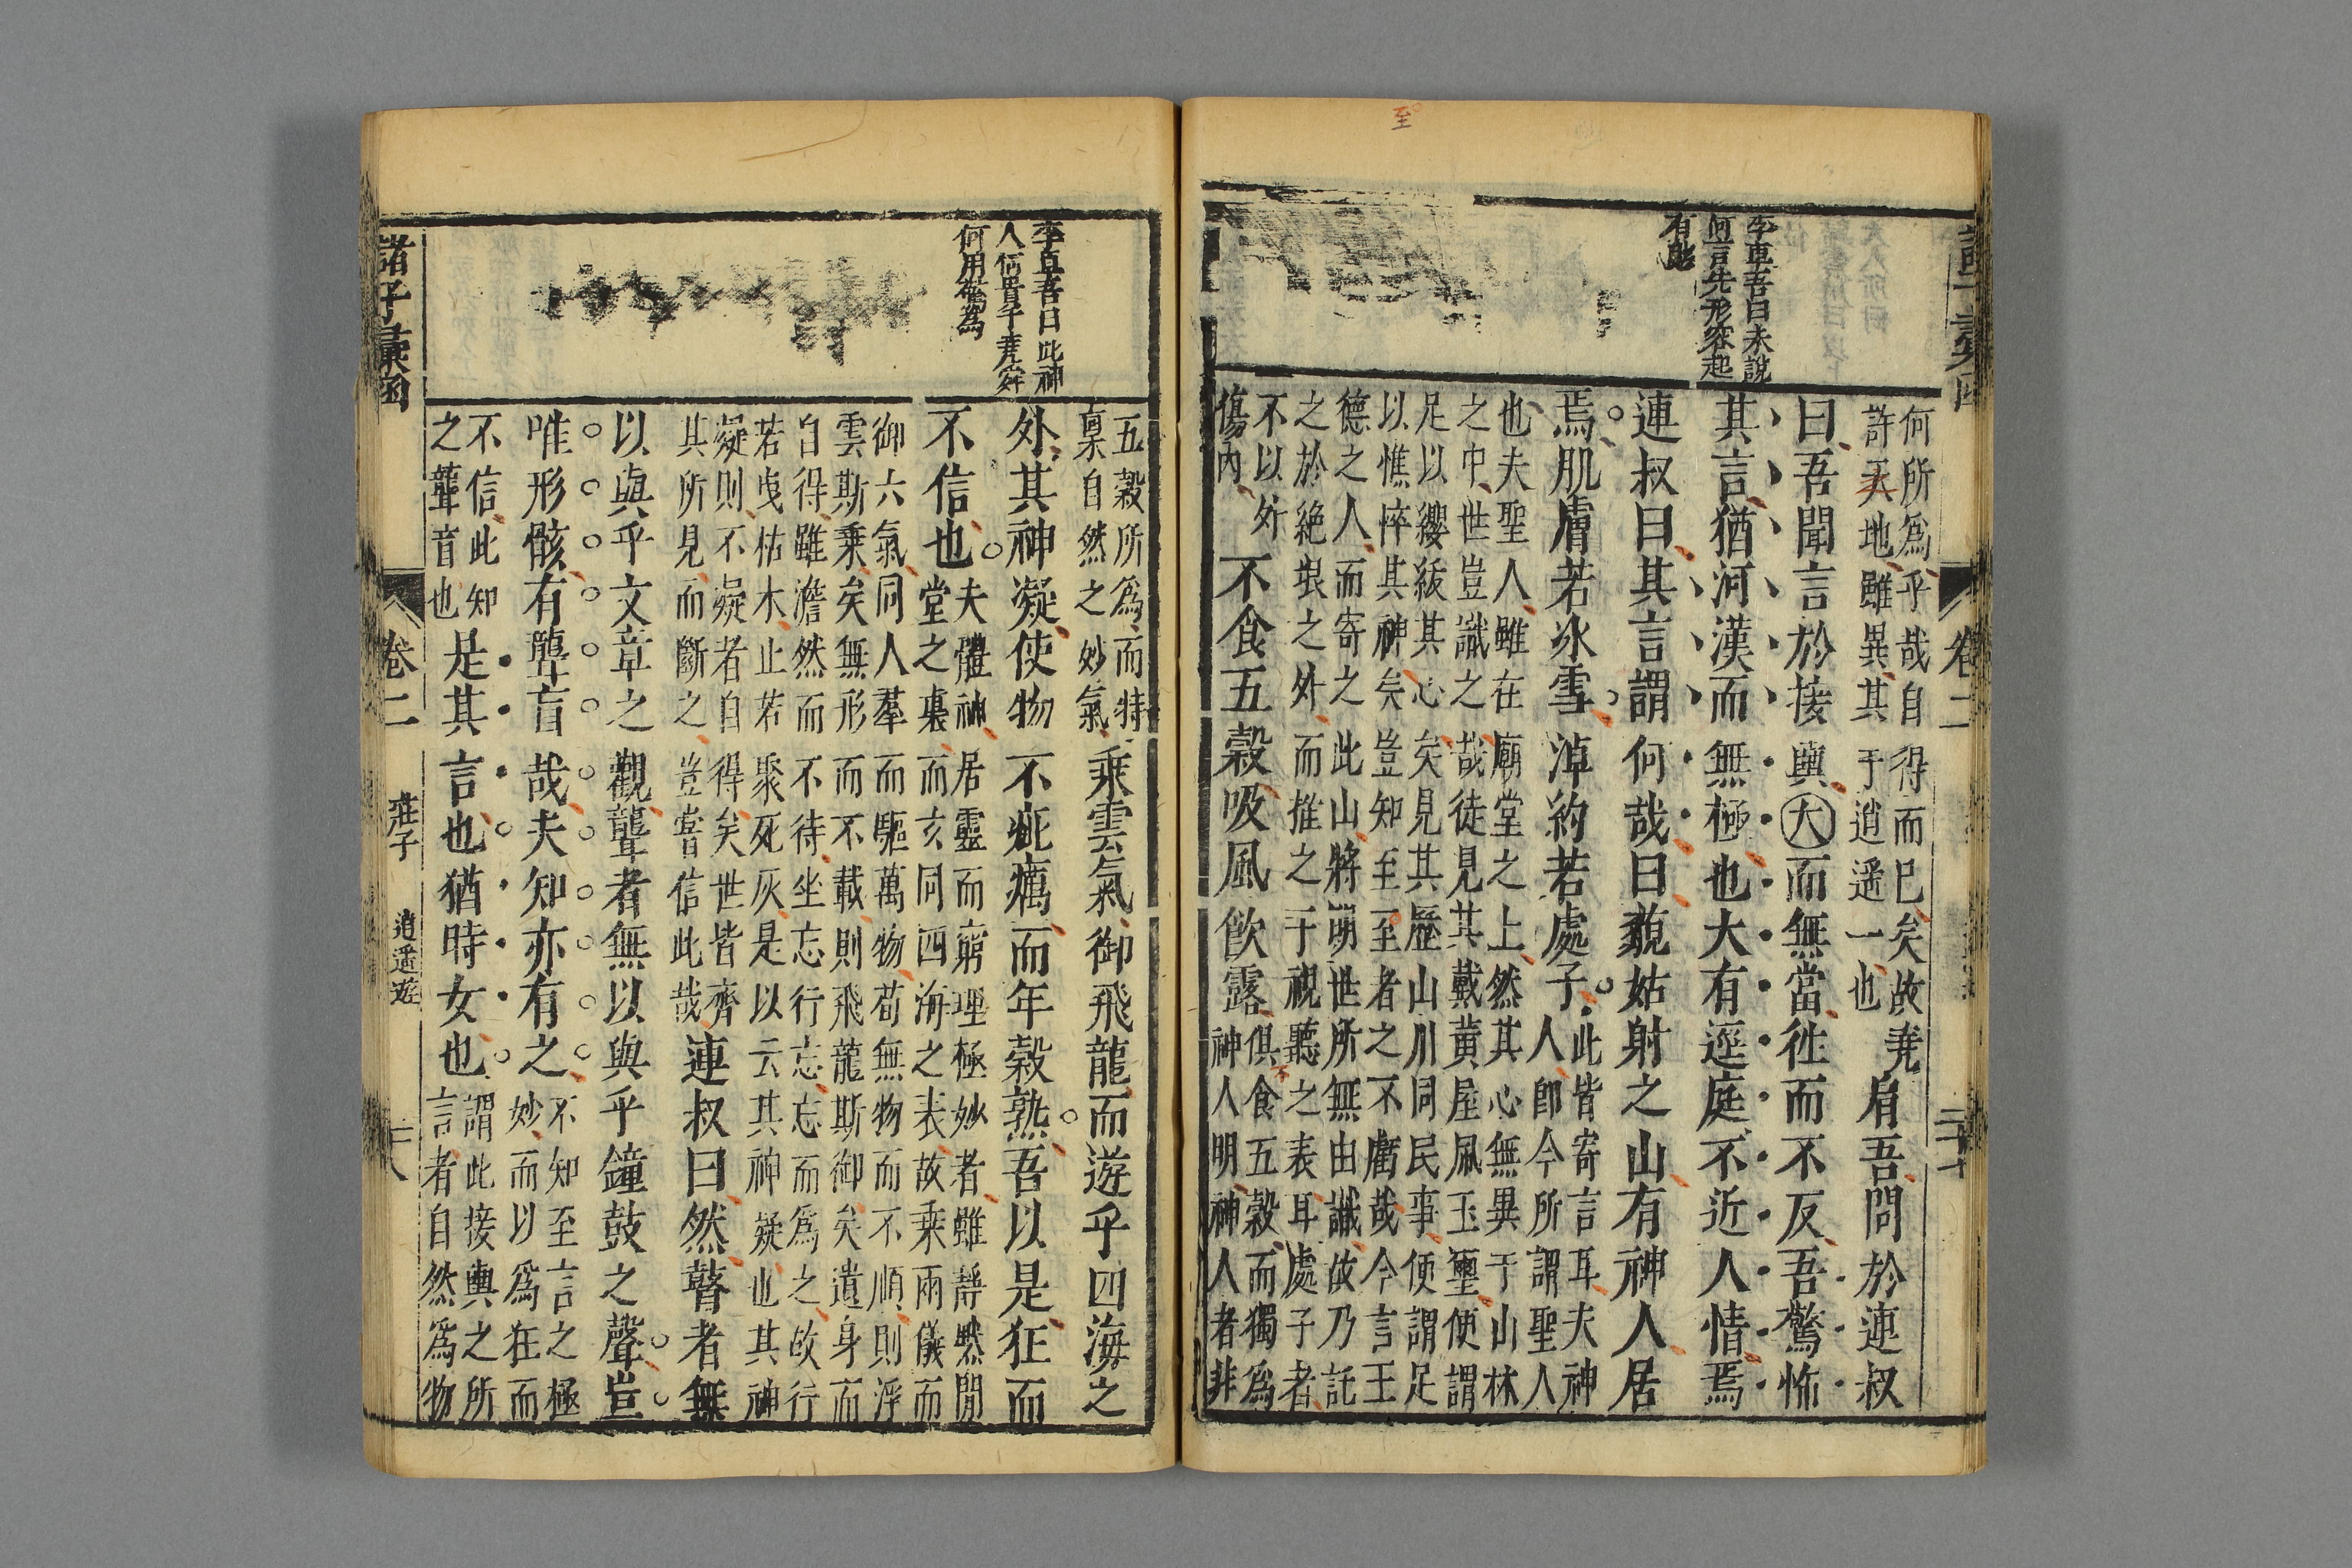 卷二
李卓吾曰未說
何言先形容起
何所爲乎哉自得而巳矣故堯
許天地雖異其于逍遥一也
肩吾問於連叔
曰吾聞言於接輿大而無當徃而不反吾驚怖
其言猶河漢而無極也大有逕庭不近人情焉
連叔曰其言謂何哉曰藐姑射之山有神人居
焉肌膚若冰雪淖約若處子
此皆寄言耳夫神
人卽今所謂聖人
也夫聖人雖在廟堂之上然其心無異于山林
之中世豈識之哉徒見其戴黄屋佩玉璽便謂
足以纓紱其心矣見其歷山川同民事便謂足
以憔悴其神矣豈知至至者之不虧哉今言王
德之人而寄之此山將明世所無由識故乃託
之於絶垠之外而推之于視聽之表耳處子者
不以外
傷內
不食五穀吸風飲露
俱食五穀而獨爲
神人明神人者非
至
李卓吾曰此神
人何異乎堯舜
何用驚為
五穀所爲而特
稟自然之妙氣
乗雲氣御飛龍而遊乎四海之
外其神凝使物不疵癘而年穀熟吾以是狂而
不信也
夫體神居靈而窮理極妙者雖靜黙閒
堂之裏而玄同四海之表故乗兩儀而
御六氣同人羣而驅萬物苟無物而不順則浮
雲斯乗矣無形而不載則飛龍斯御矣遺身而
自得雖澹然而不待坐忘行忘忘而爲之故行
若曳枯木止若聚死灰是以云其神凝也其神
凝則不凝者自得矣世皆齊
其所見而斷之豈嘗信此哉
連叔曰然瞽者無
以與乎文章之觀聾者無以與乎鐘鼓之聲豈
唯形骸有聾盲哉夫知亦有之
不知至言之極
妙而以爲狂而
不信此知
之聾盲也
是其言也猶時女也
謂此接輿之所
言者自然爲物
諸子彙函 卷二 莊子 逍遥遊